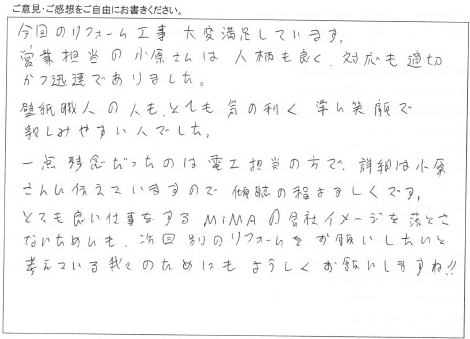 ご意見・ご感想をご自由にお書きください。
今回のリフォーム工事 大変満足しています。
営業担当の小原さんは 人柄も良く、対応も適切
かつ迅速でありました。
壁紙職人の人も、とても 気の利く 常に笑顔で
親しみやすい人でした。
一点 残念だったのは 電工担当の方で、詳細は小原
さんに伝えていますので 傾聴の程よろしくです。
とても良い仕事をする MIMAの会社イメージを落とさ
ないためにも、次回別のリフォームを お願いしたいと
考えている我々のためにも よろしくお願いしますね!!